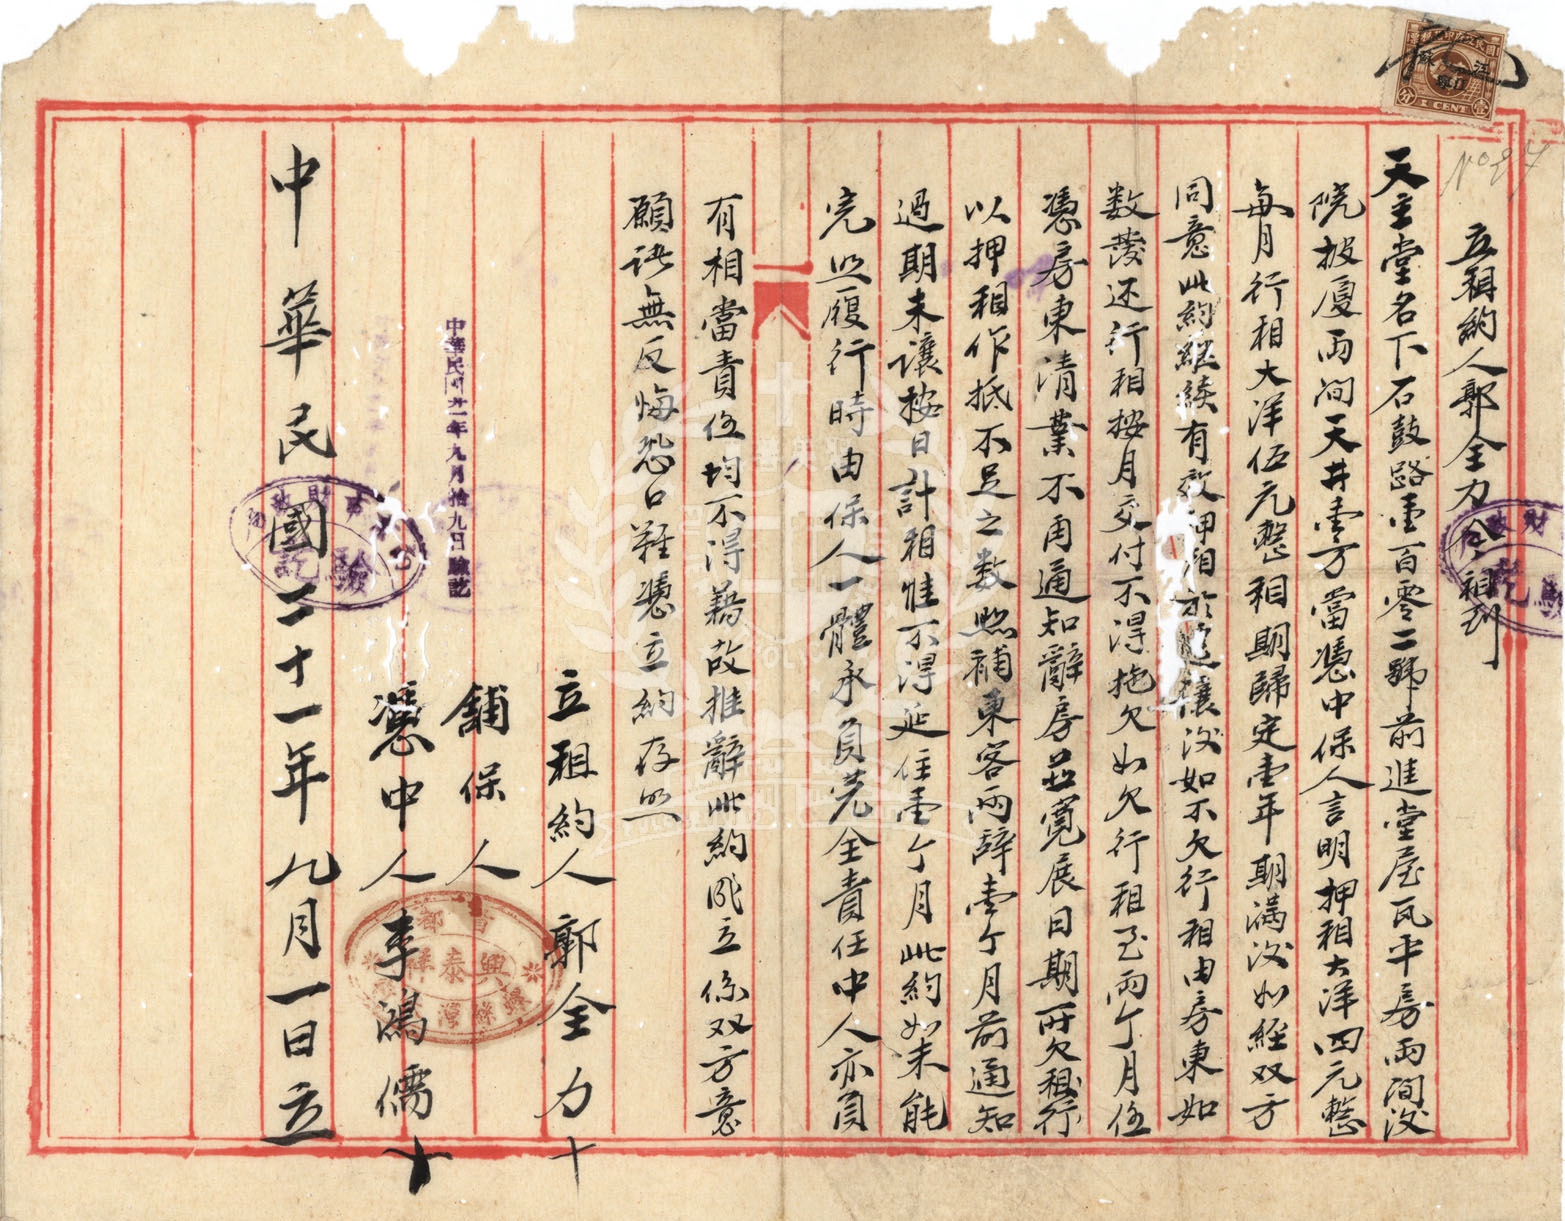 立租約人郭全力今租到
天主堂名下石鼓路壹百零二號前進堂屋瓦平房兩間後
院披厦兩间天井壹方當憑中保人言明押租大洋四元整
每月行租大洋伍元整租期歸定壹年期滿後如經双方
同意此約繼续有效押租於退讓後如不欠行租由房東如
数發还行租按月交付不得拖欠如欠行租至兩个月任
憑房東清業不用通知辭房並寬展日期所欠租行
以押租作抵不足之数照補東客兩辞壹个月前通知
過期未讓按日計租惟不得延住壹个月此約如未能
完照履行時由保人一體承負完全責任中人亦負
有相當責任均不得藉故推辭此約成立係双方意
願訣無反悔恐口難憑立約存照
立租約人郭全力十
舖保人
憑中人李鴻儒十
中華民國二十一年九月一日立
中華民國廿一年九月拾九日驗訖
驗訖
興泰祥
1 CENT
壹分
No 27